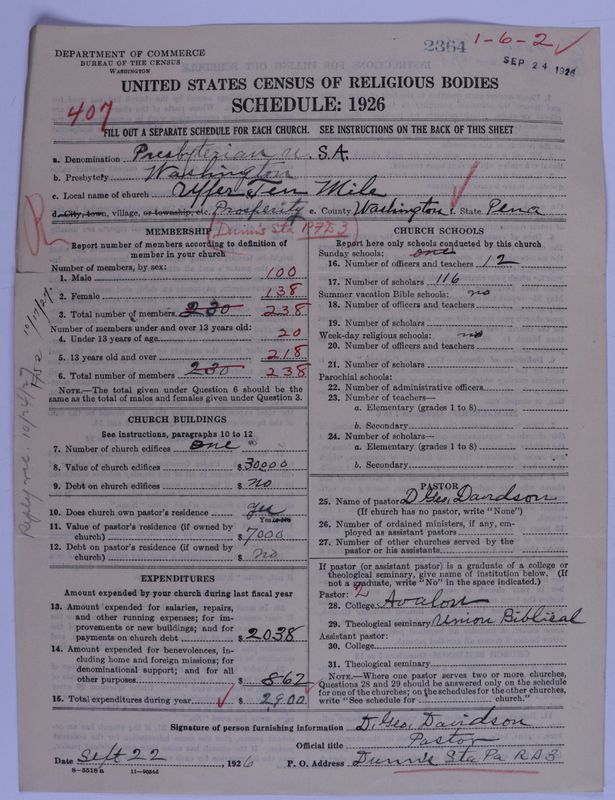 2364 1-6-2 ✓
DEPARTMENT OF COMMERCE
BUREAU OF THE CENSUS
WASHINGTON
SEP 24 1926
UNITED STATES CENSUS OF RELIGIOUS BODIES
SCHEDULE: 1926
407
FILL OUT A SEPARATE SCHEDULE FOR EACH CHURCH. SEE INSTRUCTIONS ON THE BACK OF THIS SHEET
a. Denomination Presbyterian U.S.A.
b. Presbytery Washington
c. Local name of church Upper Ten Mile
d. City, town, village, or township, etc. Prosperity e. County Washington f. State Pena
Dunn's Sta RFD 3
MEMBERSHIP
Report number of members according to definition of
member in your church
Number of members, by sex:
1. Male 100
2. Female 138
3. Total number of members 230 238
Number of members under and over 13 years old:
4. Under 13 years of age 20
5. 13 years old and over 218
6. Total number of members 230 238
NOTE.—The total given under Question 6 should be the
same as the total of males and females given under Question 3.
CHURCH BUILDINGS
See instructions, paragraphs 10 to 12
7. Number of church edifices one
8. Value of church edifices $ 30000
9. Debt on church edifices $ no
10. Does church own pastor's residence yes
Yes or No
11. Value of pastor's residence (if owned by
church) $ 7000
12. Debt on pastor's residence (if owned by
church) $ no
EXPENDITURES
Amount expended by your church during last fiscal year
13. Amount expended for salaries, repairs,
and other running expenses; for im-
provements or new buildings; and for
payments on church debt $ 2038
14. Amount expended for benevolences, in-
cluding home and foreign missions; for
denominational support; and for all
other purposes $ 862
15. Total expenditures during year ✓ $ 2900 ✓
CHURCH SCHOOLS
Report here only schools conducted by this church
Sunday schools: one
16. Number of officers and teachers 12
17. Number of scholars 116
Summer vacation Bible schools: no
18. Number of officers and teachers
19. Number of scholars
Week-day religious schools: no
20. Number of officers and teachers
21. Number of scholars
Parochial schools:
22. Number of administrative officers
23. Number of teachers—
a. Elementary (grades 1 to 8)
b. Secondary
24. Number of scholars—
a. Elementary (grades 1 to 8)
b. Secondary
PASTOR
25. Name of pastor D. Geo. Davidson
(If church has no pastor, write "None")
26. Number of ordained ministers, if any, em-
ployed as assistant pastors
27. Number of other churches served by the
pastor or his assistants
If pastor (or assistant pastor) is a graduate of a college or
theological seminary, give name of institution below. (If
not a graduate, write "No" in the space indicated.)
Pastor: 2
28. College Avalon
29. Theological seminary Union Biblical
Assistant pastor:
30. College
31. Theological seminary
NOTE.—Where one pastor serves two or more churches,
Questions 28 and 29 should be answered only on the schedule
for one of the churches; on the schedules for the other churches,
write "See schedule for church."
Signature of person furnishing information D. Geo. Davidson
Official title Pastor
Date Sept 22, 1926 P. O. Address Dunn's Sta Pa R D 3
8—5518 a